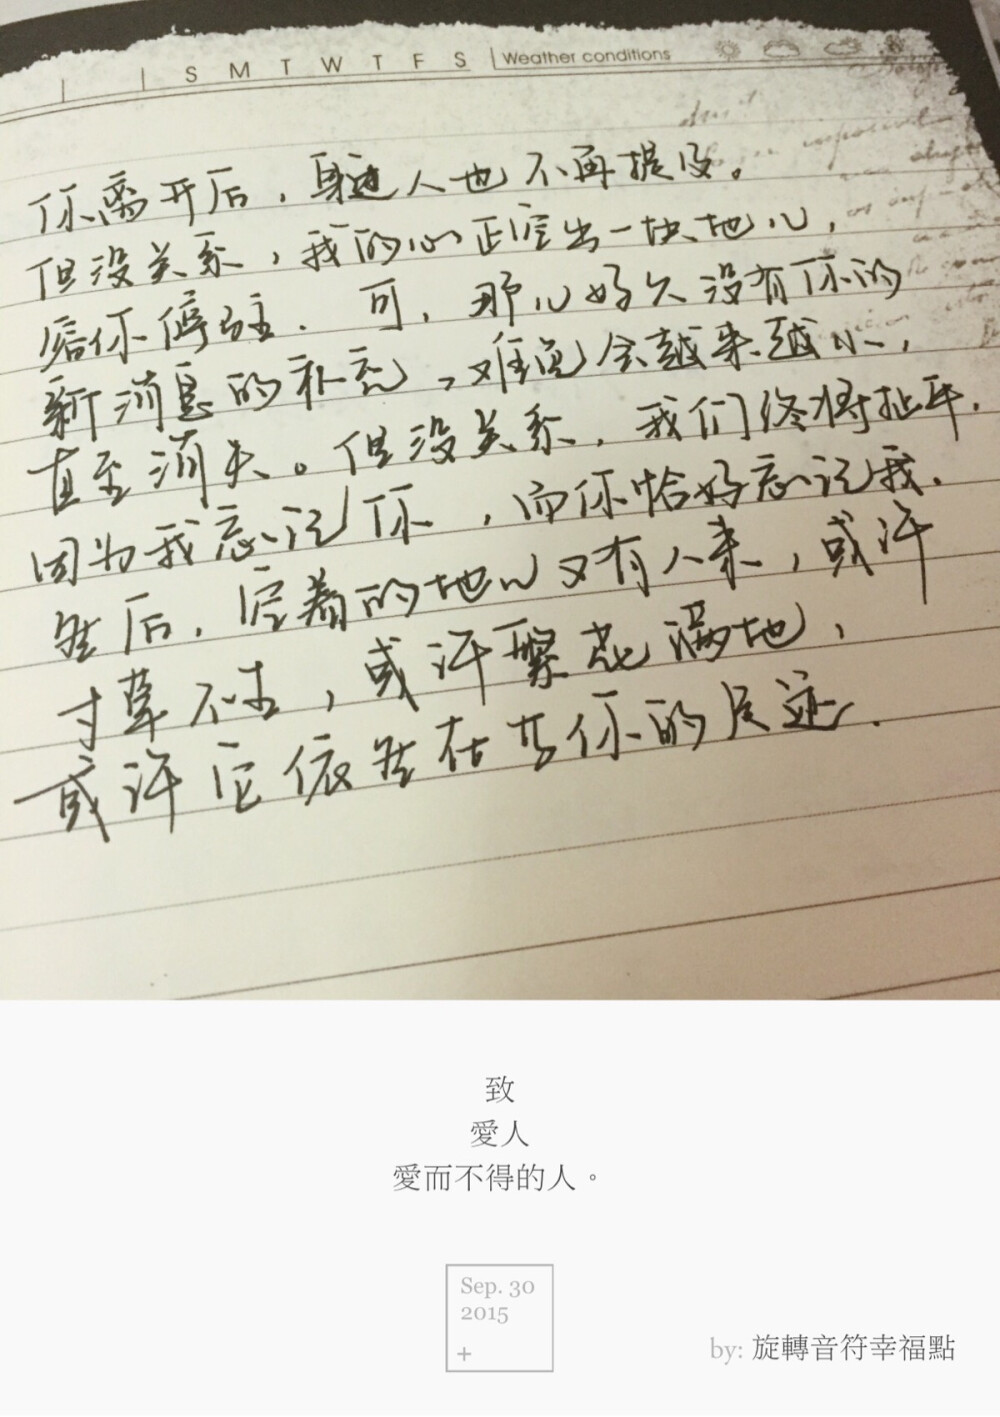 S M T W T F S Weather conditions
你离开后，身边人也不再提及。
但没关系，我的心还空出一块地儿，
给你停驻．可，那儿好久没有你的
新消息的补充，难免会越来越小，
直至消失。但没关系，我们终将扯平．
因为我忘记你，而你恰好忘记我．
然后，空着的地儿又有人来，或许
寸草不生，或许繁花满地，
或许它依然存当你的足迹．
致
愛人
愛而不得的人。
Sep. 30
2015
+
by: 旋轉音符幸福點